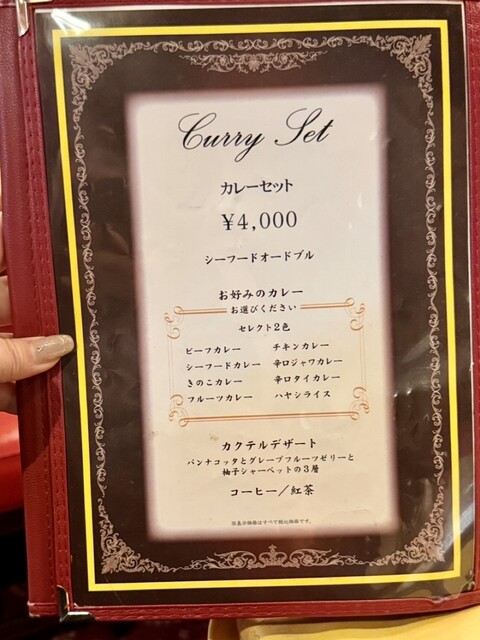 Curry Set
カレーセット
¥4,000
シーフードオードブル
お好みのカレー
お選びください
セレクト2色
ビーフカレー チキンカレー
シーフードカレー 辛口ジャワカレー
きのこカレー 辛口タイカレー
フルーツカレー ハヤシライス
カクテルデザート
パンナコッタとグレープフルーツゼリーと
柚子シャーベットの3層
コーヒー／紅茶
※表示価格はすべて税込価格です。